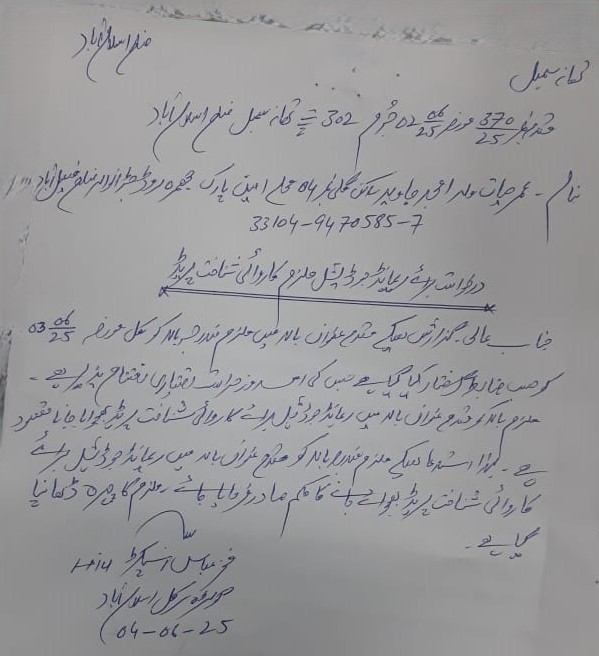 ضلع اسلام آباد
تھانہ سمبل
مقدمہ نمبر 370/25 مورخہ 02/06/25 جرم 302 ت پ تھانہ سمبل ضلع اسلام آباد
بنام۔ عمر حیات ولد امجد جاوید ساکن گلی نمبر 04 محلہ امین پارک روڈ جڑانوالہ ضلع فیصل آباد
33104-9470585-7
درخواست برائے ریمانڈ جوڈیشل ملزم کاروائی شناخت پریڈ
جناب عالی۔ گزارش ہیکہ مقدمہ عنوان بالا میں ملزم مندرجہ بالا کو کل مورخہ 03/06/25
کو حسب ضابطہ گرفتار کیا گیا ہے جس کی امروز حراست اختتام پذیر ہے۔
ملزم بالا کو مقدمہ عنوان بالا میں ریمانڈ جوڈیشل برائے کاروائی شناخت پریڈ بھجوایا جانا مقصود
ہے۔ لہذا استدعا ہیکہ ملزم مندرجہ بالا کو مقدمہ عنوان بالا میں ریمانڈ جوڈیشل برائے
کاروائی شناخت پریڈ بھجوائے جانے کا حکم صادر فرمایا جائے۔ ملزم کا چہرہ ڈھانپا
گیا ہے۔
عباس انسپکٹر HIU
سرکل اسلام آباد
04-06-25